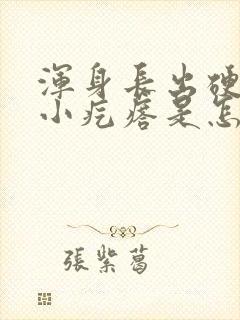 渾身長出硬
小疙瘩是怎
張紫葛